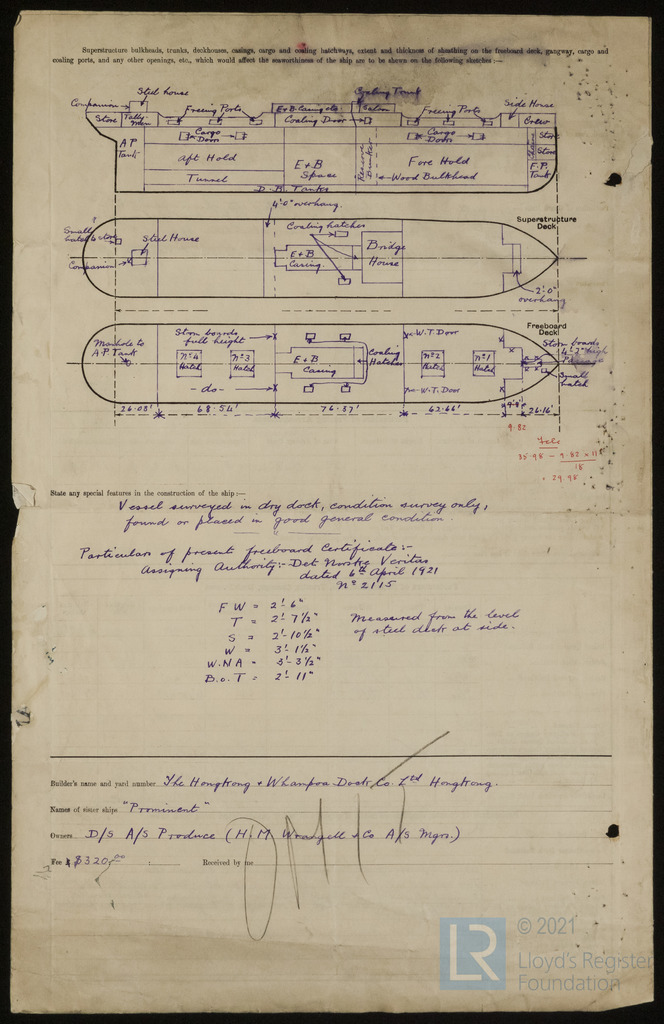 Superstructure bulkheads, trunks, deckhouses, casings, cargo and coaling hatchways, extent and thickness of sheathing on the freeboard deck, gangway, cargo and
coaling ports, and any other openings, etc., which would affect the seaworthiness of the ship are to be shewn on the following sketches:—
Steel house
Companion
Freeing Ports
E+B Casing etc
Coaling Trunk
Saloon
Freeing Ports
Side House
Store
Tally-men
Coaling Door
Crew
Cargo Door
Cargo Door
Store
Store
A P Tank
Aft Hold
E+B Space
Reserve Bunker
Fore Hold
F.P. Tank
Tunnel
Wood Bulkhead
D.B. Tanks
4'-0" overhang.
Superstructure Deck
Small hatch to store
Steel House
Coaling hatches
Companion
E+B Casing.
Bridge House
2'-0" overhang
Freeboard Deck
Manhole to A.P. Tank
Storm boards full height
W.T. Door
Storm boards
4'-7" high
Nº4 Hatch
Nº3 Hatch
E+B Casing
Coaling Hatches
Nº2 Hatch
Nº1 Hatch
Small hatch
- do -
W.T. Door
26.08'
68.54'
76.37'
62.66'
9.8'
26.16'
9.82
35.98 - 9.82 x 11
18
= 29.98
State any special features in the construction of the ship:—
Vessel surveyed in dry dock, condition survey only,
found or placed in good general condition.
Particulars of present freeboard Certificate:-
Assigning Authority:- Det Norske Veritas
dated 6th April 1921
Nº 2115
F W = 2'- 6"
T = 2'- 7½"
S = 2'- 10½"
W = 3'- 1½"
W.N.A = 3'- 3½"
B.o.T = 2'- 11"
Measured from the level
of steel deck at side.
Builder's name and yard number The Hongkong + Whampoa Dock Co. Ltd Hongkong.
Names of sister ships "Prominent"
Owners D/S A/S Produce (H.M. Wrangell + Co A/S Mgrs.)
Fee $320.00 : : Received by me
© 2021
LR
Lloyd's Register
Foundation